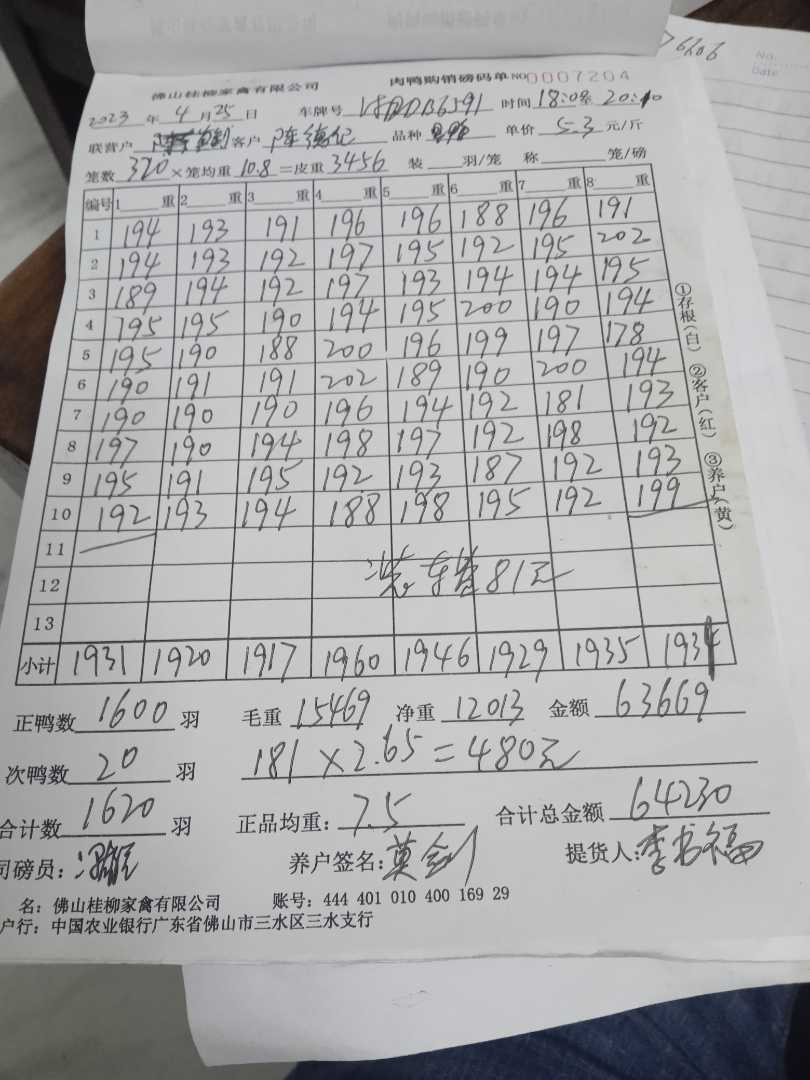 76606
No.
Date
佛山桂柳家禽有限公司 肉鸭购销磅码单 NO 0007204
2023 年 4 月 25 日 车牌号 时间 18:08至 20:10
联营户 客户 陈德记 品种 单价 5.3 元/斤
笼数 320 ×笼均重 10.8 =皮重 3456 装 羽/笼 称 笼/磅
编号 1 重 2 重 3 重 4 重 5 重 6 重 7 重 8 重
1 194 193 191 196 196 188 196 191
2 194 193 192 197 195 192 195 202
3 189 194 192 197 193 194 194 195
4 195 195 190 194 195 200 190 194
5 195 190 188 200 196 199 197 178
6 190 191 191 202 189 190 200 194
7 190 190 190 196 194 192 181 193
8 197 190 194 198 197 192 198 192
9 195 191 195 192 193 187 192 193
10 192 193 194 188 198 195 192 199
11
12 装车费81元
13
小计 1931 1920 1917 1960 1946 1929 1935 1931
正鸭数 1600 羽 毛重 15469 净重 12013 金额 63669
次鸭数 20 羽 181×2.65=480元
合计数 1620 羽 正品均重: 7.5 合计总金额 64230
司磅员: 养户签名: 莫剑 提货人: 李书福
名: 佛山桂柳家禽有限公司 账号: 444 401 010 400 169 29
户行: 中国农业银行广东省佛山市三水区三水支行
①存根(白) ②客户(红) ③养户(黄)